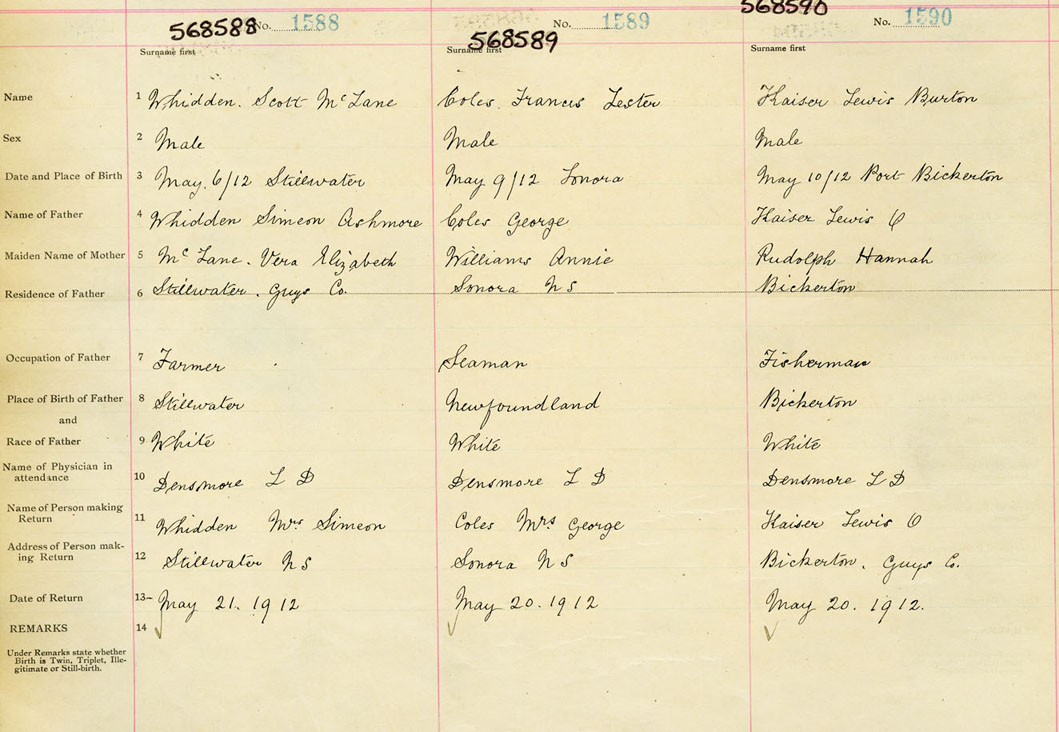 568588 No. 1588 568589 No. 1589 568590 No. 1590
Surname first Surname first Surname first
Name 1 Whidden. Scott McLane Coles, Francis Lester Kaiser Lewis Burton
Sex 2 Male Male Male
Date and Place of Birth 3 May. 6/12 Stillwater May 9/12 Sonora May 10/12 Port Bickerton
Name of Father 4 Whidden Simeon Ashmore Coles George Kaiser Lewis O
Maiden Name of Mother 5 McLane. Vera Elizabeth Williams Annie Rudolph Hannah
Residence of Father 6 Stillwater. Guys Co. Sonora N S Bickerton
Occupation of Father 7 Farmer Seaman Fisherman
Place of Birth of Father 8 Stillwater Newfoundland Bickerton
and
Race of Father 9 White White White
Name of Physician in
attendance 10 Densmore L D Densmore L D Densmore L D
Name of Person making
Return 11 Whidden Mrs Simeon Coles Mrs George Kaiser Lewis O
Address of Person mak-
ing Return 12 Stillwater N S Sonora N S Bickerton. Guys Co.
Date of Return 13 May 21. 1912 May 20. 1912 May 20. 1912.
REMARKS 14
Under Remarks state whether
Birth is Twin, Triplet, Ille-
gitimate or Still-birth.